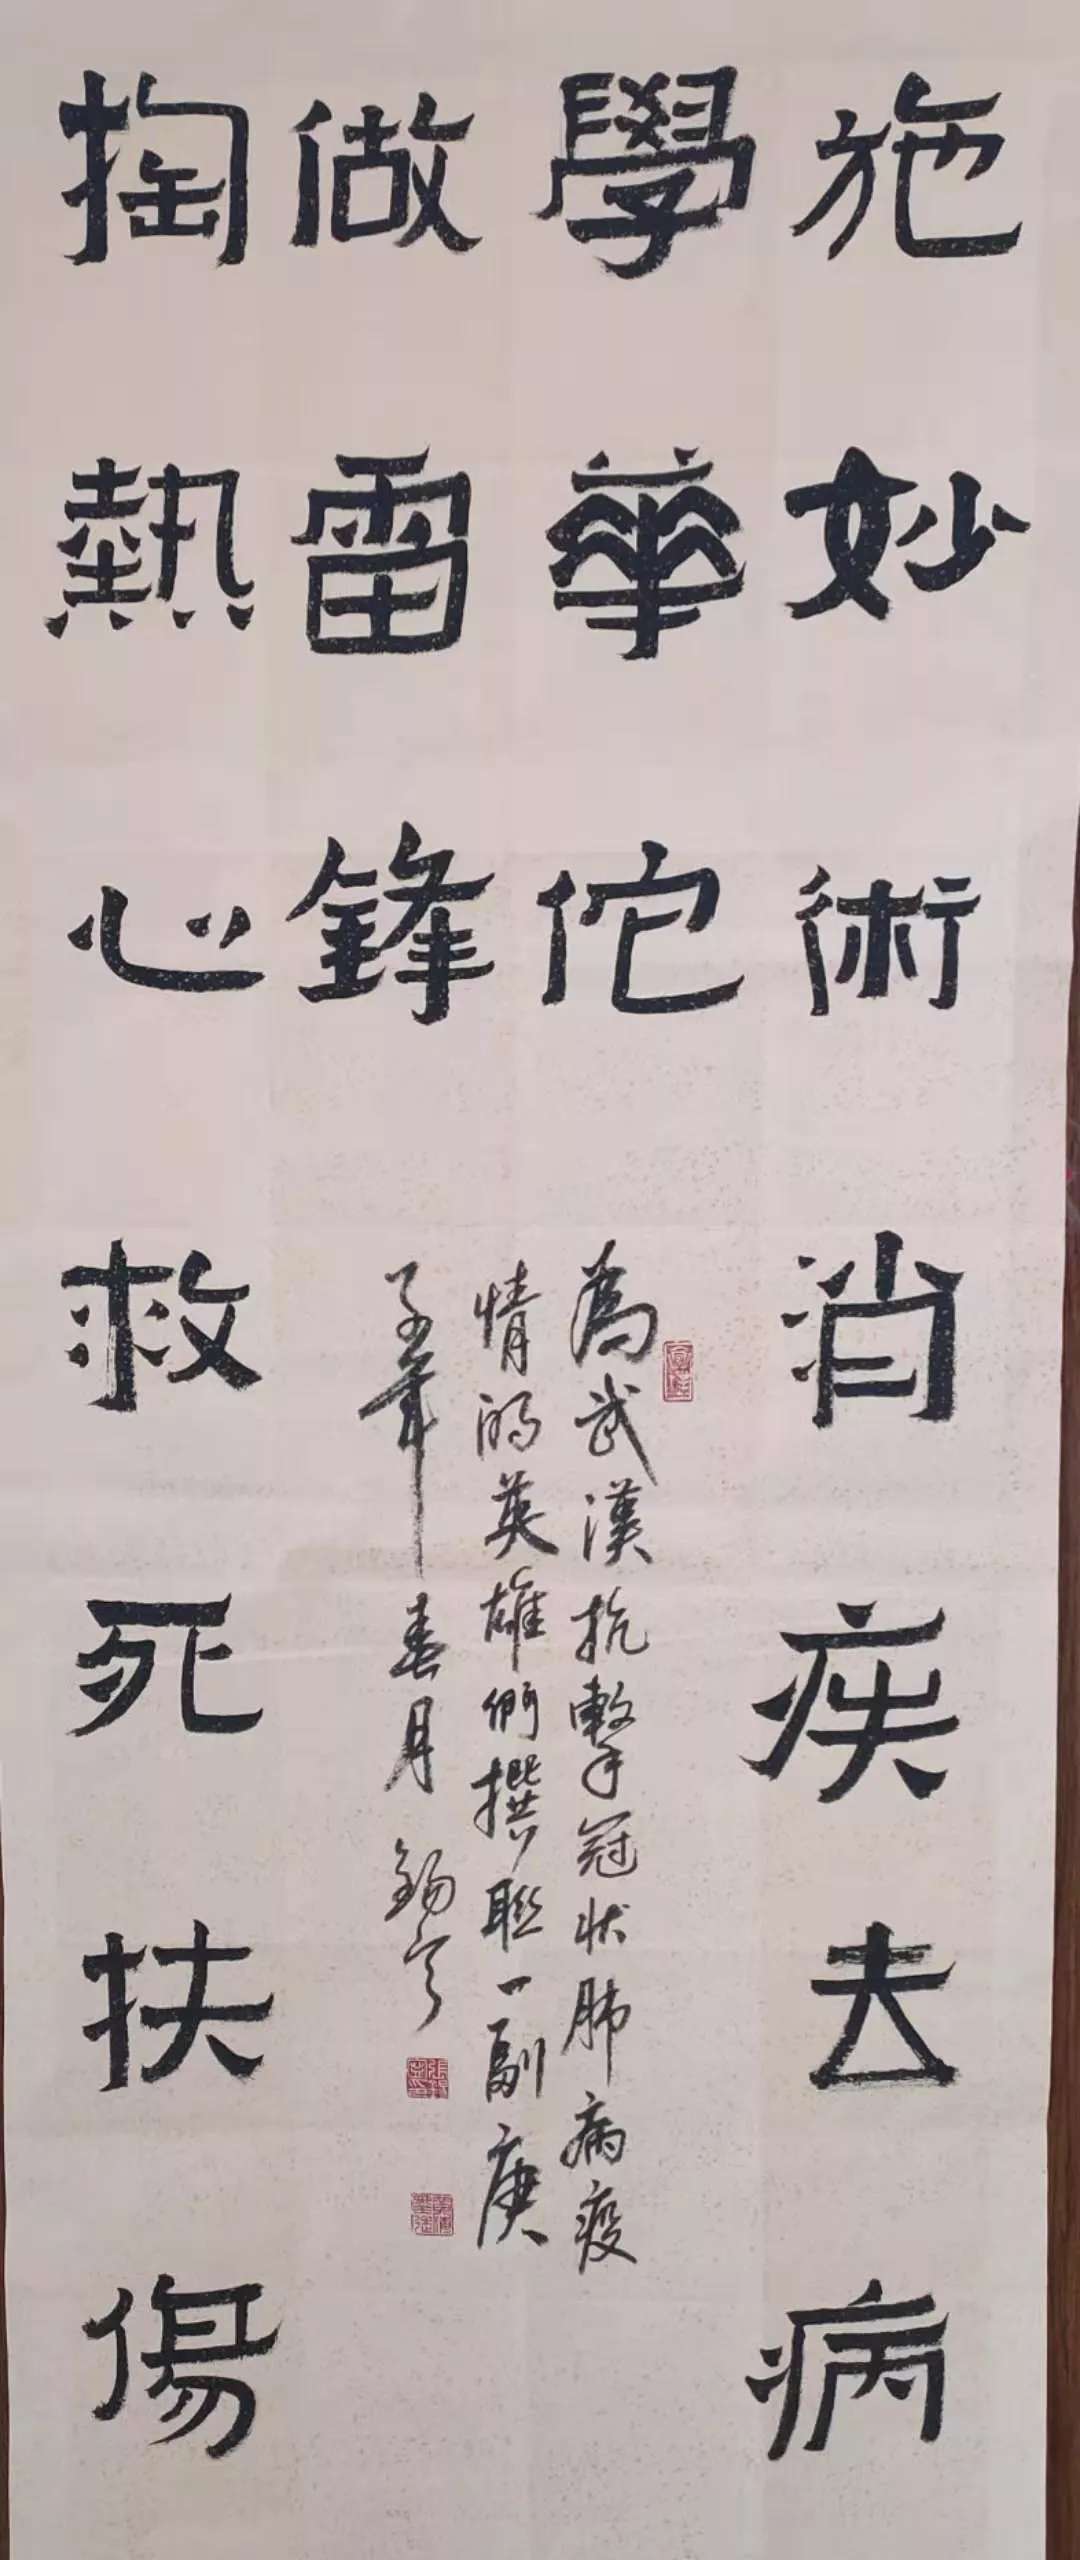 施妙術消疾去病
學華佗
掏熱心救死扶傷
做雷鋒
為武漢抗擊冠状肺病疫
情的英雄們撰聯一副庚
子年春月 錫